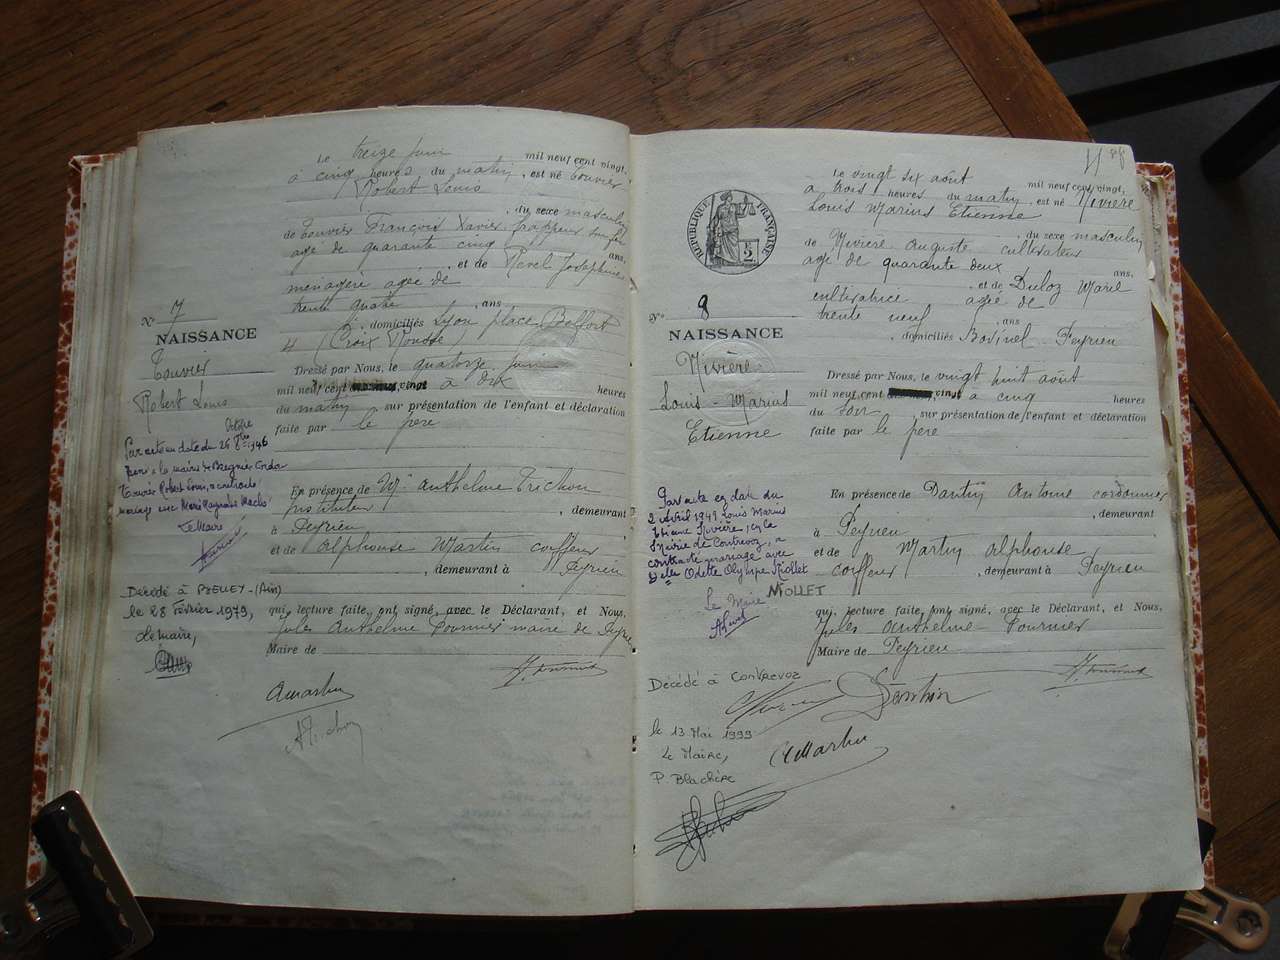 Le treize juin mil neuf cent vingt,
à cinq heures du matin, est né Touvier
Robert Louis
, du sexe masculin
de Touvier François Xavier frappeur
agé de quarante cinq ans,
, et de Revel Joséphine
ménagère agée de
trente quatre, ans
, domiciliés Lyon place Belfort
4 (Croix Rousse)
N° 7
NAISSANCE
Touvier
Robert Louis
Dressé par Nous, le quatorze juin
mil neuf cent vingt à dix heures
du matin, sur présentation de l'enfant et déclaration
faite par le père
octobre
Par acte en date du 26 8bre 1946
à la mairie de Brégnier Cordon
Touvier Robert Louis, a contracté
mariage avec Marie
Le Maire
En présence de Mr Anthelme Trichon
instituteur, demeurant
à Peyrieu
et de Alphonse Martin coiffeur
, demeurant à Peyrieu
Décédé à BELLEY - (Ain)
le 28 Février 1979,
le maire,
qui, lecture faite, ont signé, avec le Déclarant, et Nous,
Jules Anthelme Fournier maire de Peyrieu
Maire de
A Martin
A Trichon
11
RÉPUBLIQUE FRANÇAISE
2
Le vingt six août mil neuf cent vingt,
à trois heures du matin, est né Rivière
Louis Marius Etienne
, du sexe masculin
de Rivière Auguste cultivateur
agé de quarante deux ans,
, et de Duloz Marie
cultivatrice agée de
trente neuf, ans
, domiciliés Bovinel Peyrieu
N° 8
NAISSANCE
Rivière
Louis - Marius
Etienne
Dressé par Nous, le vingt huit août
mil neuf cent vingt à cinq heures
du soir, sur présentation de l'enfant et déclaration
faite par le père
Par acte en date du
2 avril 1949 Louis Marius
Etienne Rivière, en la
Mairie de Contrevoz, a
contracté mariage avec
Delle Odette Olympe Mollet
MOLLET
Le Maire
En présence de Dantin Antoine cordonnier
, demeurant
à Peyrieu
et de Martin Alphonse,
coiffeur, demeurant à Peyrieu
qui, lecture faite, ont signé, avec le Déclarant, et Nous,
Jules Anthelme Fournier
Maire de Peyrieu
Décédé à CONTREVOZ
le 13 Mai 1999
Le Maire,
P. Blachère
Rivière
Dantin
A Martin